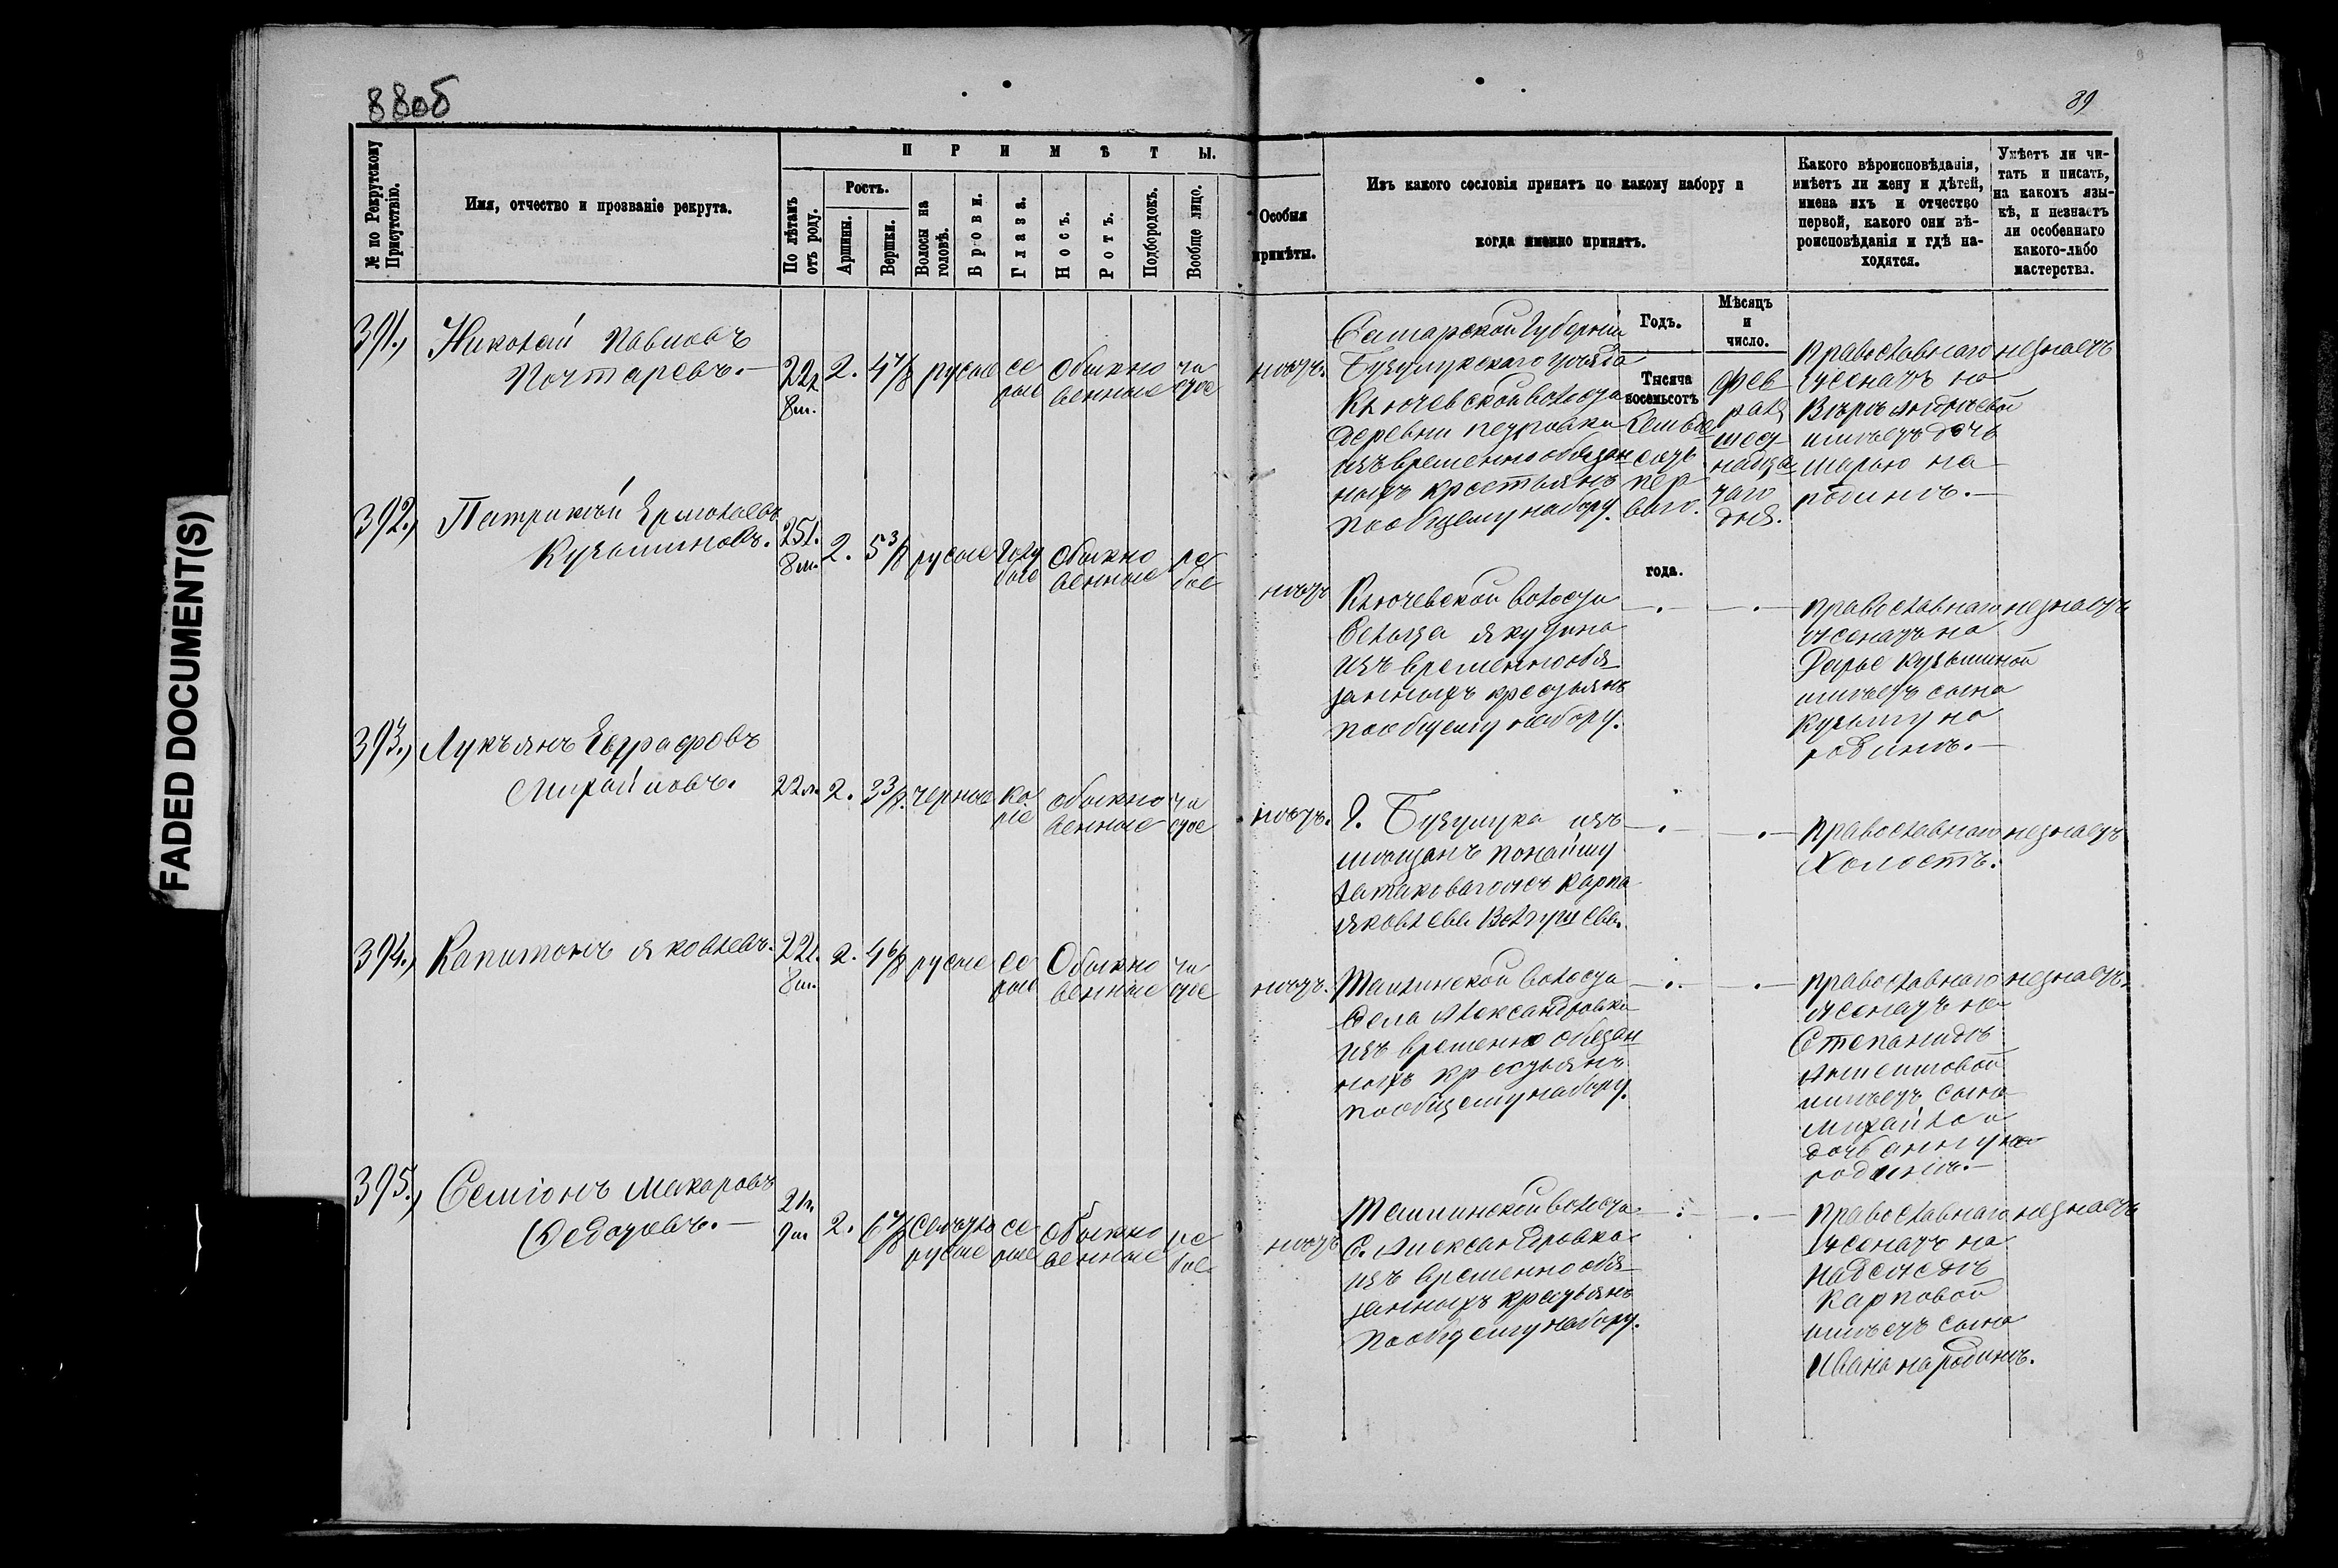 FADED DOCUMENT(S)
88об
89
№ по Рекрутскому Присутствію.
Имя, отчество и прозваніе рекрута.
ПРИМѢТЫ.
По лѣтамъ отъ роду.
Ростъ.
Аршины.
Вершки.
Волосы на головѣ.
Брови.
Глаза.
Носъ.
Ротъ.
Подбородокъ.
Вообще лицо.
Особыя примѣты.
Изъ какого сословія принятъ по какому набору и
когда именно принятъ.
Какого вѣроисповѣданія,
имѣетъ ли жену и дѣтей,
имена ихъ и отчество
первой, какого они вѣ-
роисповѣданія и гдѣ на-
ходятся.
Умѣетъ ли чи-
тать и писать,
на какомъ язы-
кѣ, и незнаетъ
ли особеннаго
какого-либо
мастерства.
Годъ.
Мѣсяцъ
и
число.
391.) Николай Павловъ
Почтаревъ.
22 л
8 м.
2. 4 7/8 русые се
рые
Обыкно
венные
чи
стое
нѣтъ.
Самарской Губерніи
Бузулукскаго уѣзда
Ключевской волости
деревни Петровки
изъ временно обязан
ныхъ крестьянъ
по общему набору.
Тысяча
восемьсотъ
семьде
сятъ
пер
ваго.
года.
Фев
раля
шест
надца
таго
дня.
Православнаго
женатъ на
Вѣрѣ Андреевой
имѣетъ дочь
Марью на
родинѣ.
незнаетъ
392.) Патрикій Ермолаевъ
Кузьминовъ.
25 л.
8 м.
2. 5 3/8 русые Голу
бые
Обыкно
венные
ря
бое
нѣтъ
Ключевской волости
Сельца Якутина
изъ временнообя
занныхъ крестьянъ
по общему набору.
Православнаго
женатъ на
Дарье Кузьминой
имѣетъ сына
Кузьму на
родинѣ.
незнаетъ
393.) Лукъянъ Евграфовъ
Михайловъ.
22 л. 2. 3 3/8. черные ка
ріе
обыкно
венные
чи
стое
нѣтъ.
г. Бузулука изъ
мѣщанъ по найму
за таковагоже Карпа
Яковлева
Православнаго
Холостъ.
незнаетъ
394.) Капитонъ Яковлевъ.
22 л.
8 м.
2. 4 6/8 русые се
рые
Обыкно
венные
чи
стое
нѣтъ.
Ташлинской волости
Села Александровки
изъ временно обязан
ныхъ крестьянъ
по общему набору.
Православнаго
женатъ на
Степанидѣ
имѣетъ сына
Михайла и
дочь Анну на
родинѣ.
незнаетъ.
395.) Семіонъ Макаровъ
Федотовъ.
21 л.
9 м
2. 6 7/8 Светло
русые
се
рые
обыкно
венные
ря
бое
нѣтъ
Ташлинской волости
С. Александровки
изъ временно обя
занныхъ крестьянъ
по общему набору.
Православнаго
женатъ на
Надежде
Карповой
имѣетъ сына
Ивана на родинѣ.
незнаетъ